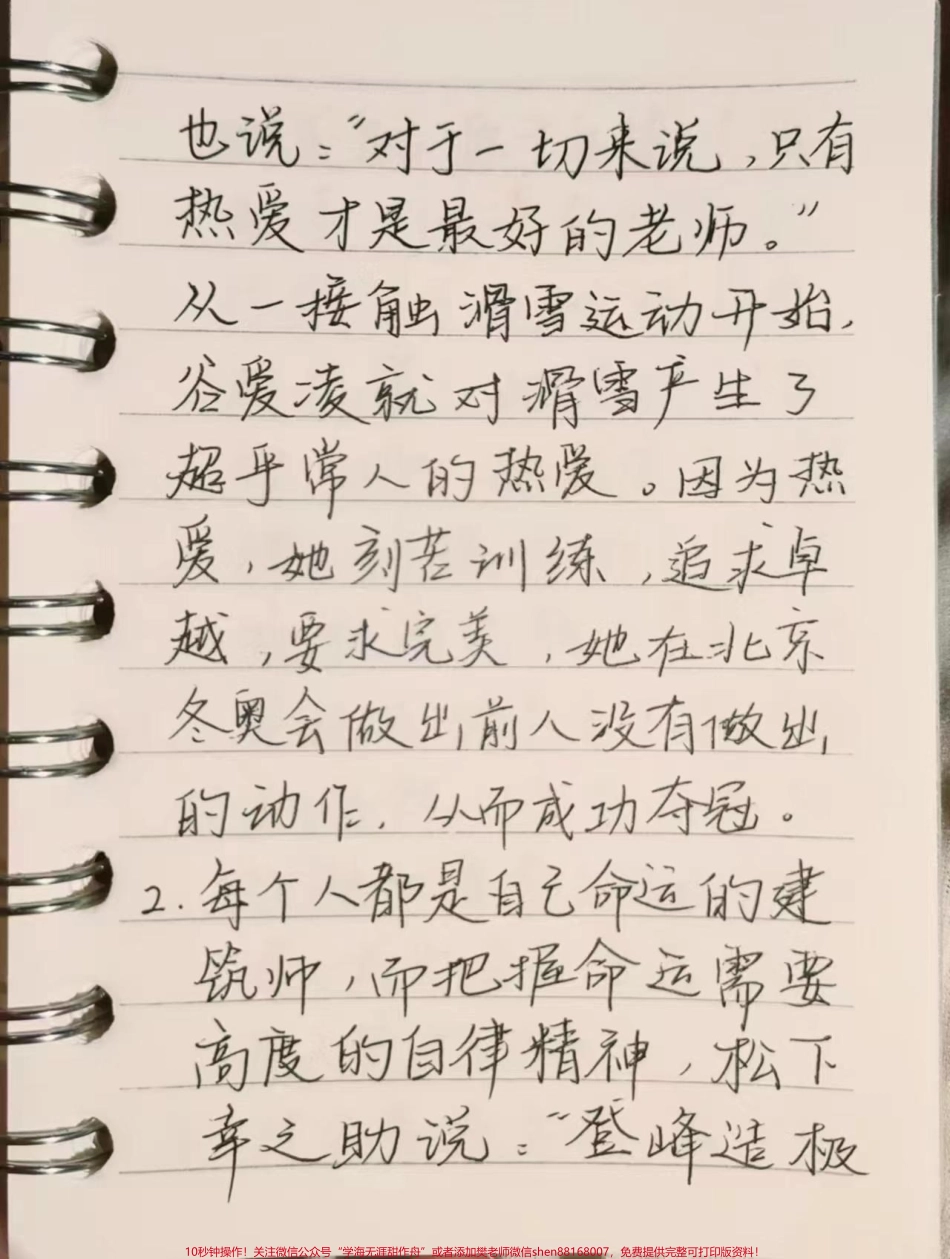 也说："对于一切来说，只有
热爱才是最好的老师。"
从一接触滑雪运动开始，
谷爱凌就对滑雪产生了
超乎常人的热爱。因为热
爱，她刻苦训练，追求卓
越，要求完美，她在北京
冬奥会做出前人没有做出
的动作，从而成功夺冠。
2.每个人都是自己命运的建
筑师，而把握命运需要
高度的自律精神，松下
幸之助说："登峰造极
10秒钟操作！关注微信公众号"学海无涯甜作舟"或者添加樊老师微信shen88168007，免费提供完整可打印版资料！